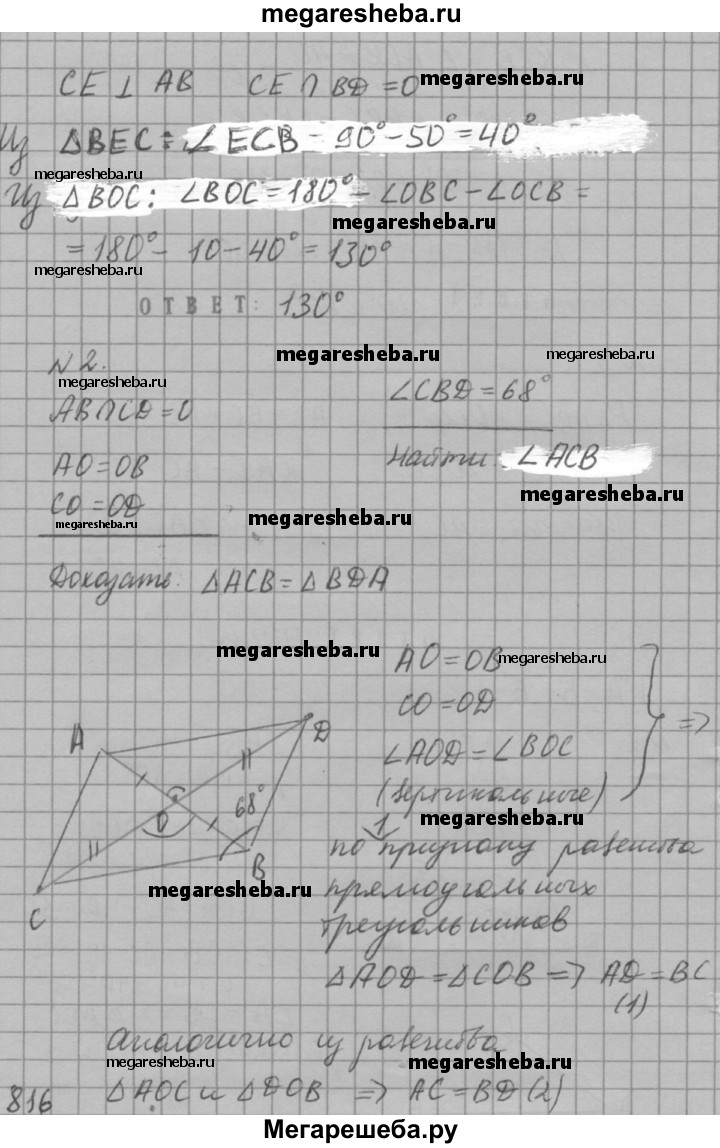 megaresheba.ru
CE ⊥ AB CE ∩ BD = O megaresheba.ru
Из ΔBEC: ∠ECB - 90° - 50° = 40°
megaresheba.ru
Из ΔBOC: ∠BOC = 180° - ∠OBC - ∠OCB =
megaresheba.ru
= 180° - 10 - 40° = 130°
megaresheba.ru
ОТВЕТ: 130°
N 2. megaresheba.ru megaresheba.ru
megaresheba.ru
∠CBD = 68°
AB ∩ CD = O
Найти: ∠ACB
AO = OB
megaresheba.ru
CO = OD
megaresheba.ru megaresheba.ru
Доказать: ΔACB = ΔBDA
megaresheba.ru
AO = OB megaresheba.ru
CO = OD
∠AOD = ∠BOC =>
(вертикальные)
megaresheba.ru
A D
O 68°
B
C
megaresheba.ru
1
по признаку равенства
прямоугольных
треугольников
ΔAOD = ΔCOB => AD = BC
(1)
Аналогично из равенства
megaresheba.ru megaresheba.ru
ΔAOC и ΔDOB => AC = BD (2)
816
Мегарешеба.ру